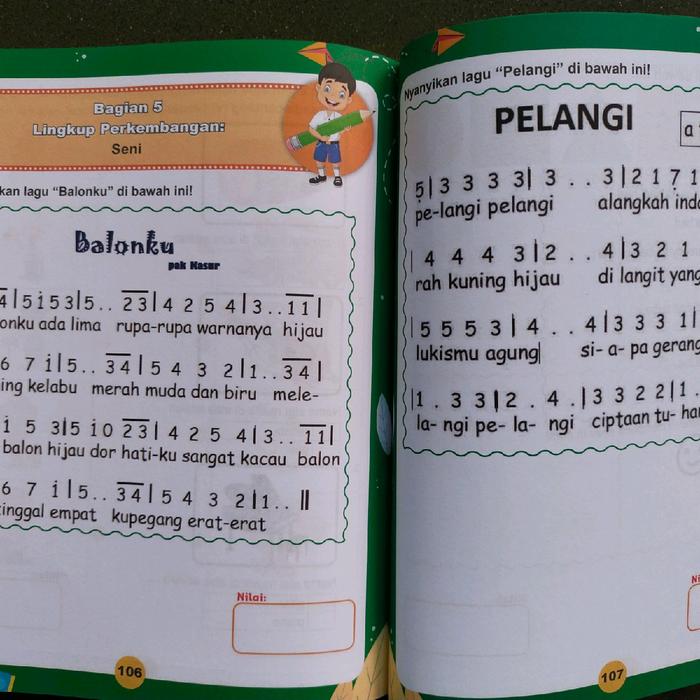 Bagian 5
Lingkup Perkembangan:
Seni
kan lagu "Balonku" di bawah ini!
Balonku
pak Kasur
4|5i53|5..23|4 2 5 4|3..11|
onku ada lima rupa-rupa warnanya hijau
6 7 i|5..34|5 4 3 2|1..34|
ing kelabu merah muda dan biru mele-
i 5 3|5 i0 23|4 2 5 4|3..11|
balon hijau dor hati-ku sangat kacau balon
6 7 i|5..34|5 4 3 2|1..||
inggal empat kupegang erat-erat
Nilai:
106
Nyanyikan lagu "Pelangi" di bawah ini!
PELANGI
5|3 3 3 3|3 . . 3|2 1 7 1
pe-langi pelangi alangkah inda
|4 4 4 3|2 . . 4|3 2 1
rah kuning hijau di langit yang
|5 5 5 3|4 . . 4|3 3 3 1|
lukismu agung si-a-pa gerang
|1 . 3 3|2 . 4 .|3 3 2 2|1 .
la- ngi pe- la- ngi ciptaan tu- ha
Ni
107